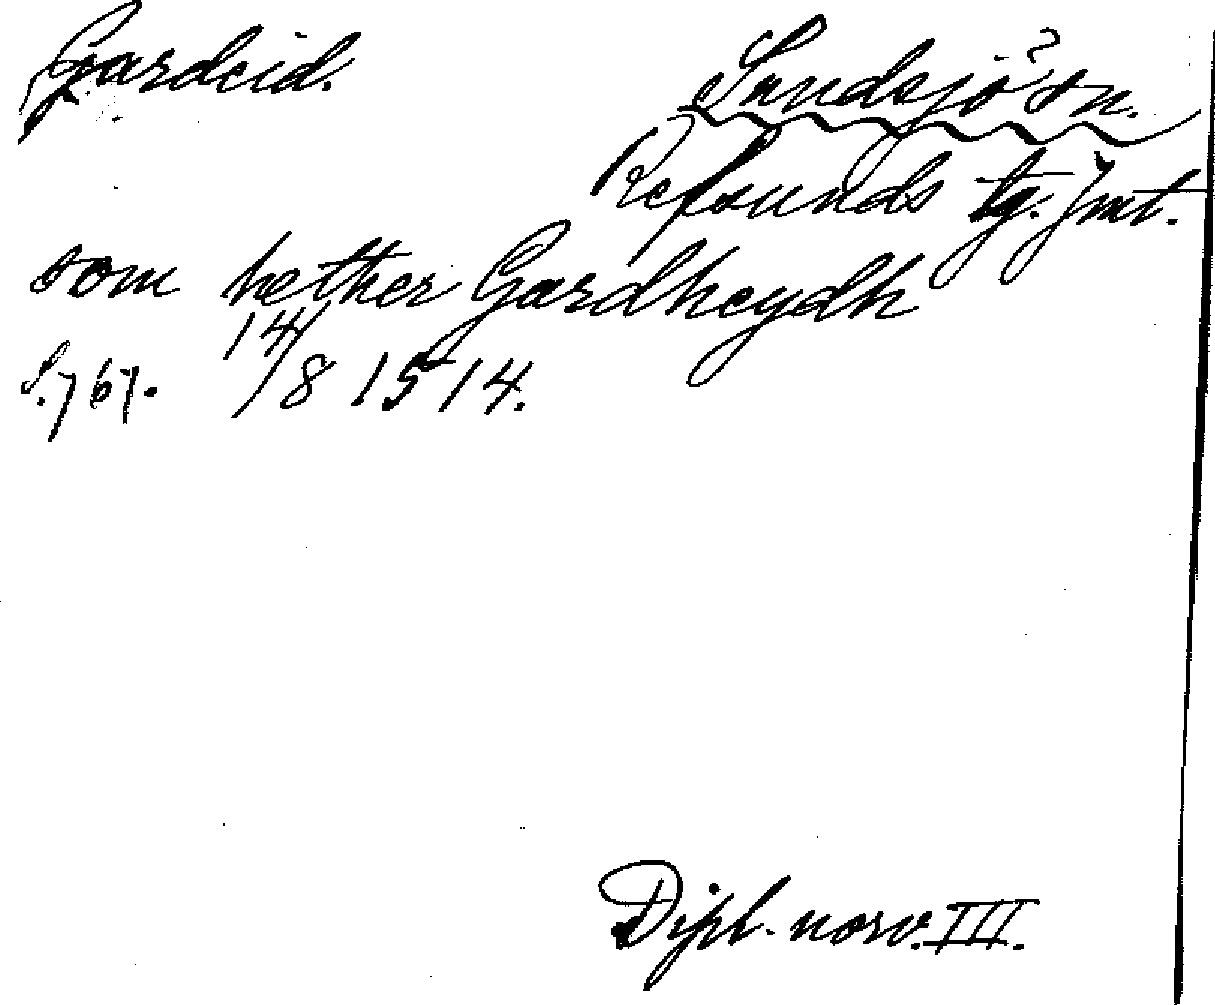 Gardeid.
Sundsjö? sn.
Refsunds tg. Jmt.
som hether Gardheydh
S. 767. 14/8 1514.
Dipl. norv. III.